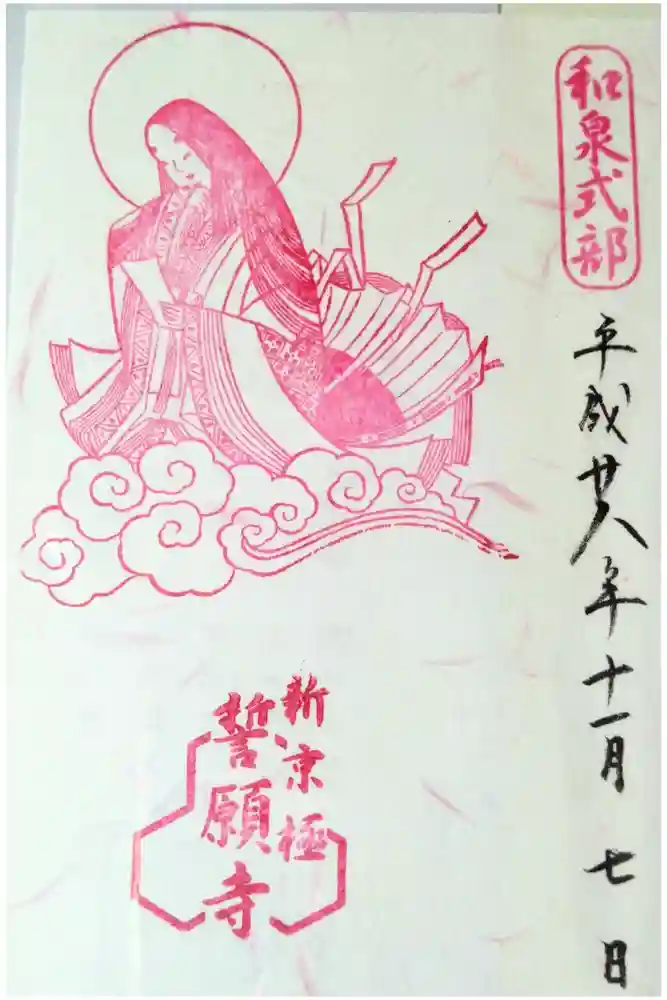 和泉式部
平成廿八年十一月七日
新京極
誓願寺